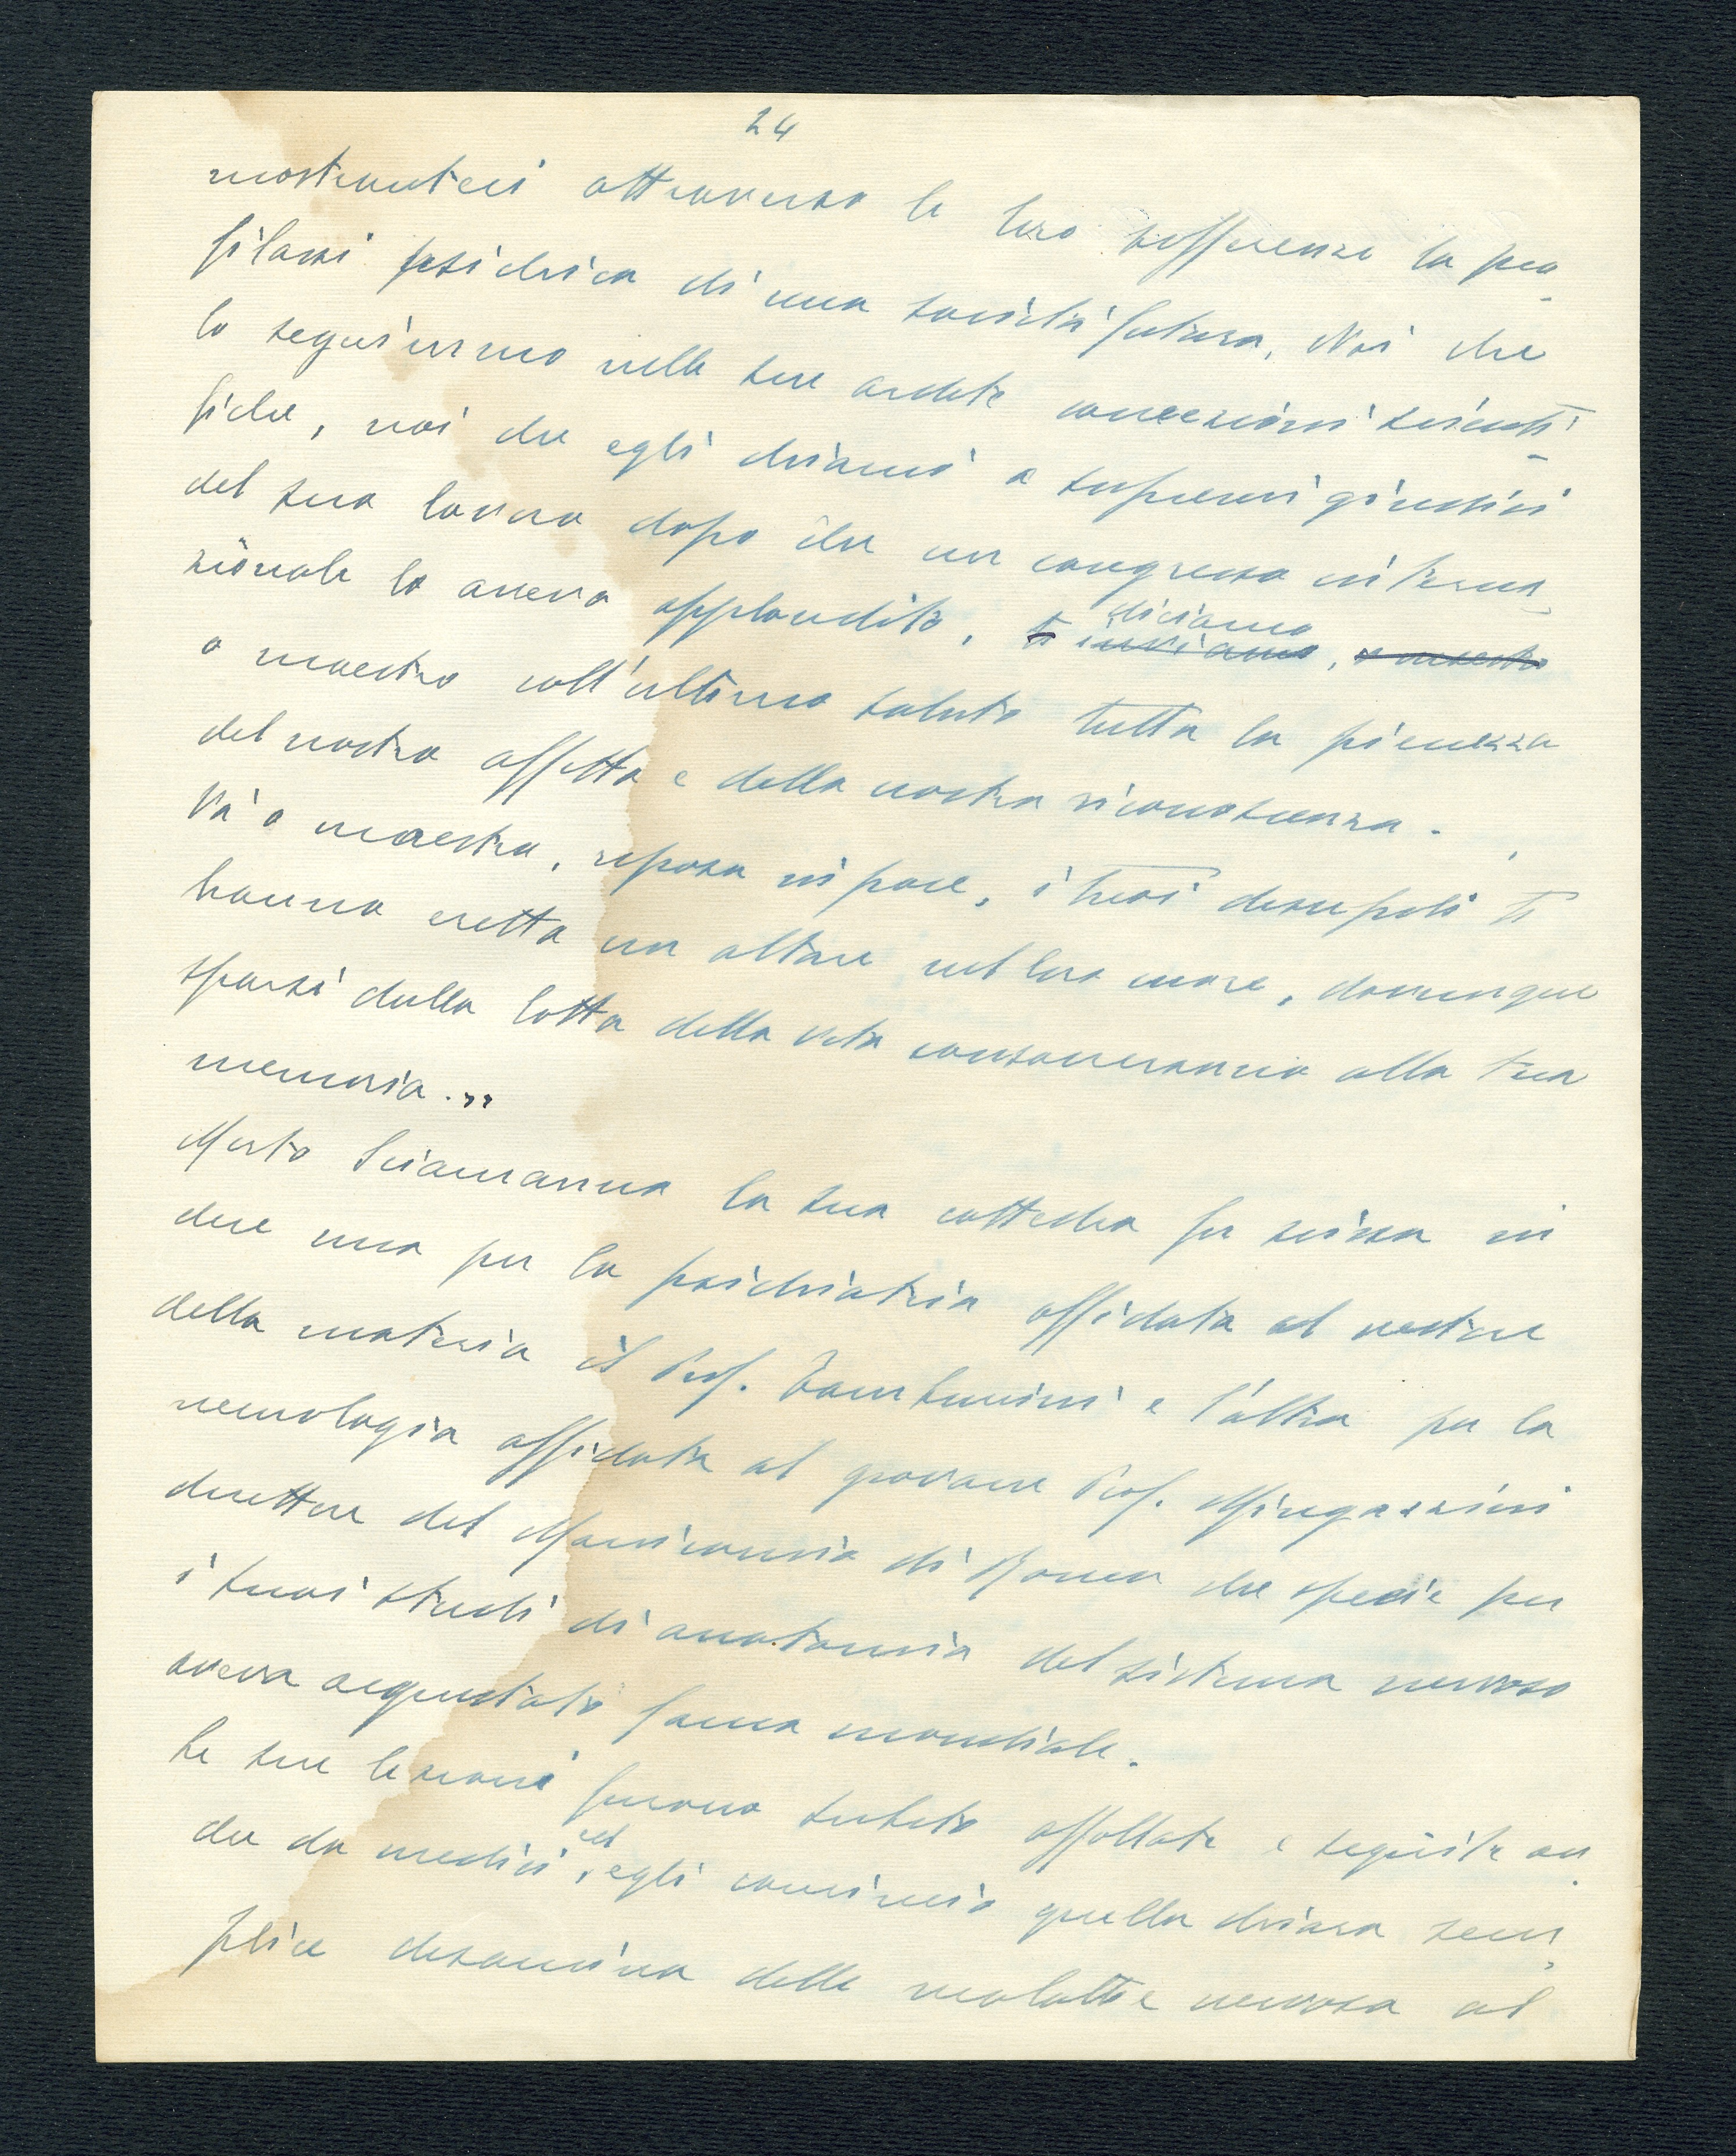 24
mostrantesi attraverso le loro sofferenze la pro-
filassi psichica di una società futura. Noi che
lo seguimmo nelle sue ardite concezioni scienti-
fiche, noi che egli chiamò a supremi giudici
del suo lavoro dopo che un congresso interna-
zionale lo aveva applaudito, ti inviamo diciamo, o maestro
o maestro coll'ultimo saluto tutta la pienezza
del nostro affetto e della nostra riconoscenza.
Va' o maestro, riposa in pace, i tuoi discepoli ti
hanno eretto un altare nel loro cuore, dovunque
sparsi dalla lotta della vita consacreranno alla tua
memoria."
Morto Sciamanna la sua cattedra fu scissa in
due una per la psichiatria affidata al nestore
della materia il Prof. Tamburini e l'altra per la
neurologia affidata al giovane Prof. Mingazzini
direttore del Manicomio di Roma che specie per
i suoi studi di anatomia del sistema nervoso
aveva acquistato fama mondiale.
Le sue lezioni furono subito affollate e seguite an-
che da medici, ed egli cominciò quella chiara sem-
plice disamina delle malattie nervose al